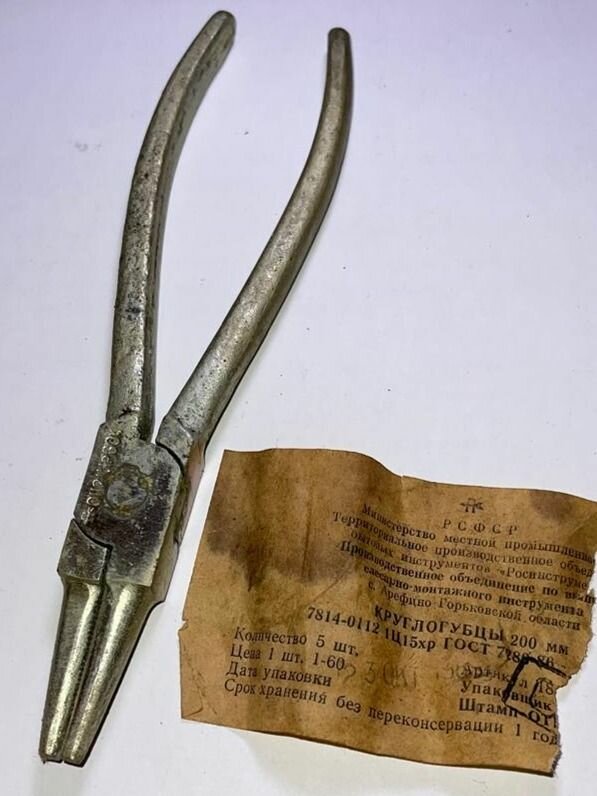 РСФСР
Министерство местной промышленно
Территориальное производственное объед
бытовых инструментов «Росинструме
Производственное объединение по
слесарно-монтажного инструмента
с. Арефино Горьковской области
КРУГЛОГУБЦЫ 200 мм
7814-0112 1Ц15хр ГОСТ
Количество 5 шт.
Цена 1 шт. 1-60
Дата упаковки
Упаковщик
Штамп ОТ
Срок хранения без переконсервации 1 год